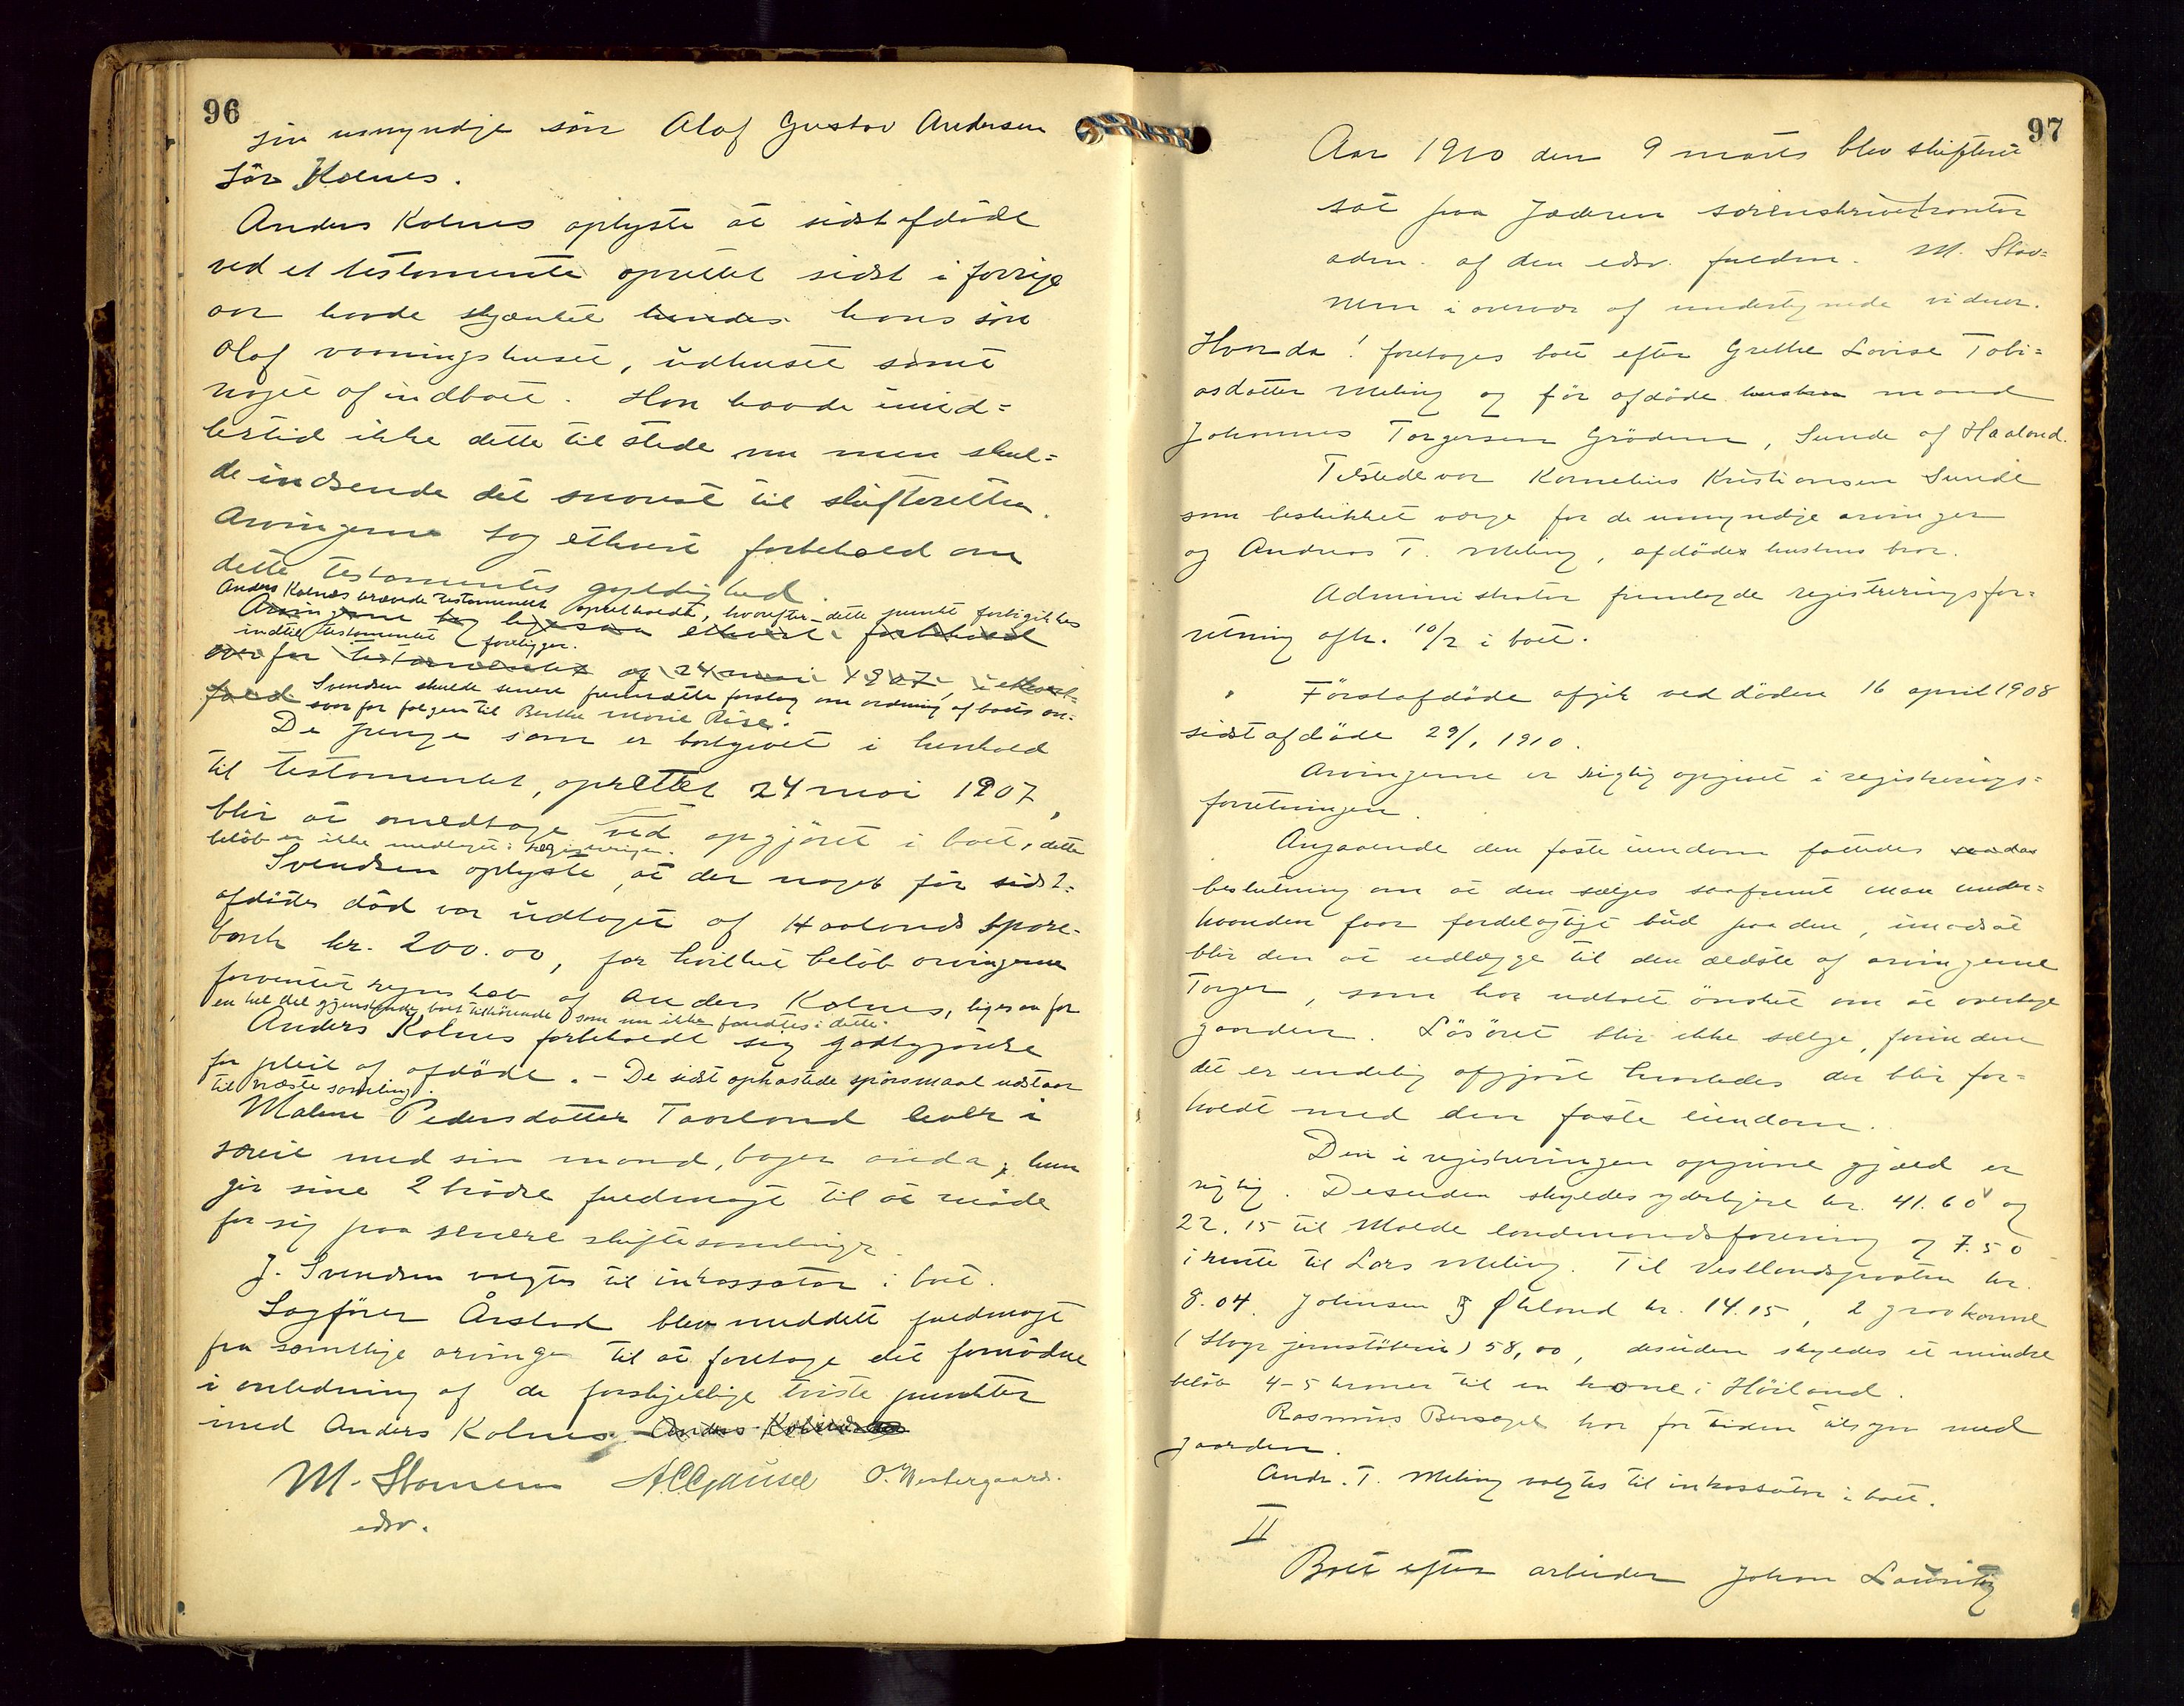 96
sin umyndige sön Olaf Gustav Andersen
Sör Kolnes.
Anders Kolnes oplyste at sidstafdöde
ved et testamente oprettet sidst i forrige
aar havde skjænket hendes hans sön
Olaf vaaningshuset, udhuset samt
noget af indboet. Han havde imid=
lertid ikke dette til stede nu men skul=
de indsende det snarest til skifteretten.
Arvingerne tog ethvert forbehold om
dette testamentes gyldighed.
Anders Kolnes krævede testamentet opretholdt, hvorefter dette punkt forbigikkes
Arvingerne tog ligesaa ethvert forbehold
indtil testamentet foreligger.
over for testamentet af 24 mai 1907, i ethvert
Svendsen skulde senere fremsætte forslag om ordning af boets an-
fald
svar for følgen til Berthe Marie Aise.
De penge som er bortgivet i henhold
til testamentet, oprettet 24 mai 1907,
blir at medtage ved opgjöret i boet, dette
belöb er ikke medtaget i registreringen.
Svendsen oplyste, at der noget för sidst=
afdödes död var udtaget af Haalands Spare-
bank kr. 200.00, for hvilket belöb arvingerne
forventer regnskab af Anders Kolnes, ligesaa for
en hel del gjenstande boet tilhörende som nu ikke fandtes i dette.
Anders Kolnes forbeholdt sig godtgjörelse
for pleie af afdöde. – De sidst opkastede spörsmaal udstaar
til næste samling
Malene Pedersdatter Taarland lever i
særeie med sin mand, bager Aüda; hun
gir sine 2 brödre fuldmagt til at möde
for sig paa senere skiftesamlinger.
J. Svendsen valgtes til inkassator i boet.
Sagförer Årstad blev meddelt fuldmagt
fra samtlige arvinger til at foretage det fornödne
i anledning af de forskjellige tviste punkter
med Anders Kolnes. Anders Kolnes
M. Stornem A.C. Gausel O. Westergaard.
edsv.
97
Aar 1910 den 9 marts blev skifteret
sat paa Jæderen sorenskriverkontor
adm. af den edsv. fuldm. M. Stor=
nem i overvær af undertegnede vidner.
Hvor da! foretoges boet efter Grethe Lovise Tobi=
asdatter Meling og för afdöde hustru mand
Johannes Torgersen Grödem, Sunde af Haaland.
Tilstede var Kornelius Kristiansen Sunde
som beskikket værge for de umyndige arvinger
og Andreas T. Meling, afdödes hustrus bror.
Administrator fremlagde registreringsfor=
retning afh. 10/2 i boet.
Förstafdöde afgik ved döden 16 april 1908
sidstafdöde 29/1 1910.
Arvingerne er rigtig opgivet i registrerings=
forretningen.
Angaaende den faste eiendom fattedes saadan
beslutning om at den sælges saafremt man under=
haanden faar fordelagtigt bud paa den, imodsat
blir den at udlægge til den ældste af arvingerne
Torger, som har udtalt önsket om at overtage
gaarden. Lösöret blir ikke sælge, forinden
det er endelig afgjort hvorledes der blir for=
holdt med den faste eiendom.
Den i registreringen opgivne gjæld er
rigtig. Desuden skyldes yderligere kr. 41.60 og
22.15 til Malde landmandsforening og 7.50
i rente til Lars Meling. Til Vestlandsposten kr.
8.04. Johnsen & Økland kr. 14.15, 2 gravkorme
(Stvgr jernstöberi) 58,00, desuden skyldes et mindre
belöb 4-5 kroner til en kone i Höiland.
Rasmus Bersagel har for tiden tilsyn med
gaarden.
Andr. T. Meling valgtes til inkassator i boet.
II
Boet efter arbeider Johan Lauritz